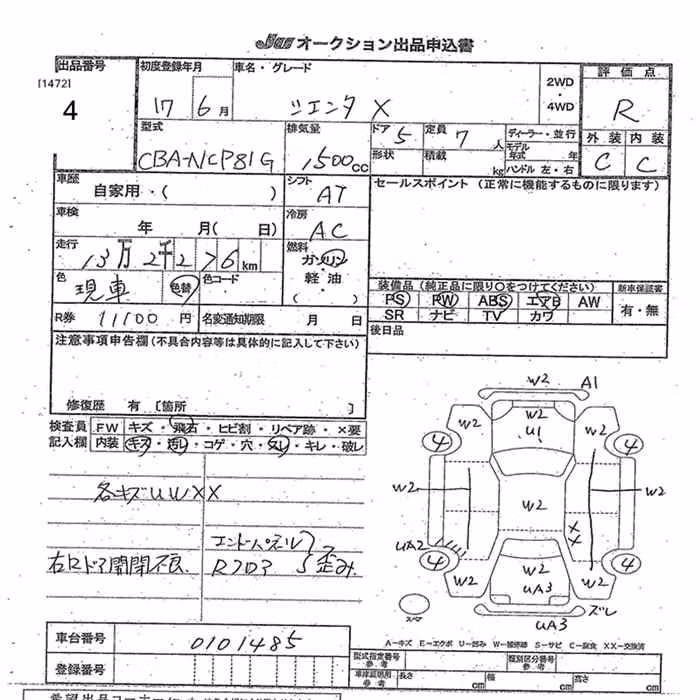 Jaa オークション出品申込書
出品番号 初度登録年月 車名・グレード 2WD・4WD 評価点
[1472]
4 17 6月 シエンタ X R
型式 排気量 ドア 5 定員 7人 ディーラー・並行 外装 内装
CBA-NCP81G 1,500cc 形状 積載 kg モデル年式 年 ハンドル 左・右 C C
車歴 シフト セールスポイント (正常に機能するものに限ります)
自家用・( ) AT
車検 冷房
年 月( 日) AC
走行 燃料
13万2千276km ガソリン・軽油
色 色替 色コード ( ) 装備品 (純正品に限り〇をつけてください) 新車保証書
現車 PS PW ABS エアB AW 有・無
R券 11100円 名変通知期限 月 日 SR ナビ TV カワ
注意事項申告欄 (不具合内容等は具体的に記入して下さい) 後日品
修復歴 有 [箇所 ]
検査員 FW キズ・飛石・ヒビ割・リペア跡・×要
記入欄 内装 キズ・汚レ・コゲ・穴・欠レ・キレ・破レ
各キズUWXX
エンドパネル
右Rドア開閉不良 Rフロア 歪み
W2 A1
W2
W2 U1 W2
4 4
W2 W2 W2
UA2 XX
4 4
W2 W2 W2
UA3
UA3 ズレ
スペア
A-キズ E-エクボ U-凹み W-補修跡 S-サビ C-腐食 XX-交換済
車台番号 0101485 型式指定番号 参考 類別区分番号 参考
登録番号 車庫証明用 参考 長さ cm 幅 cm 高さ cm
希望出品コーナー